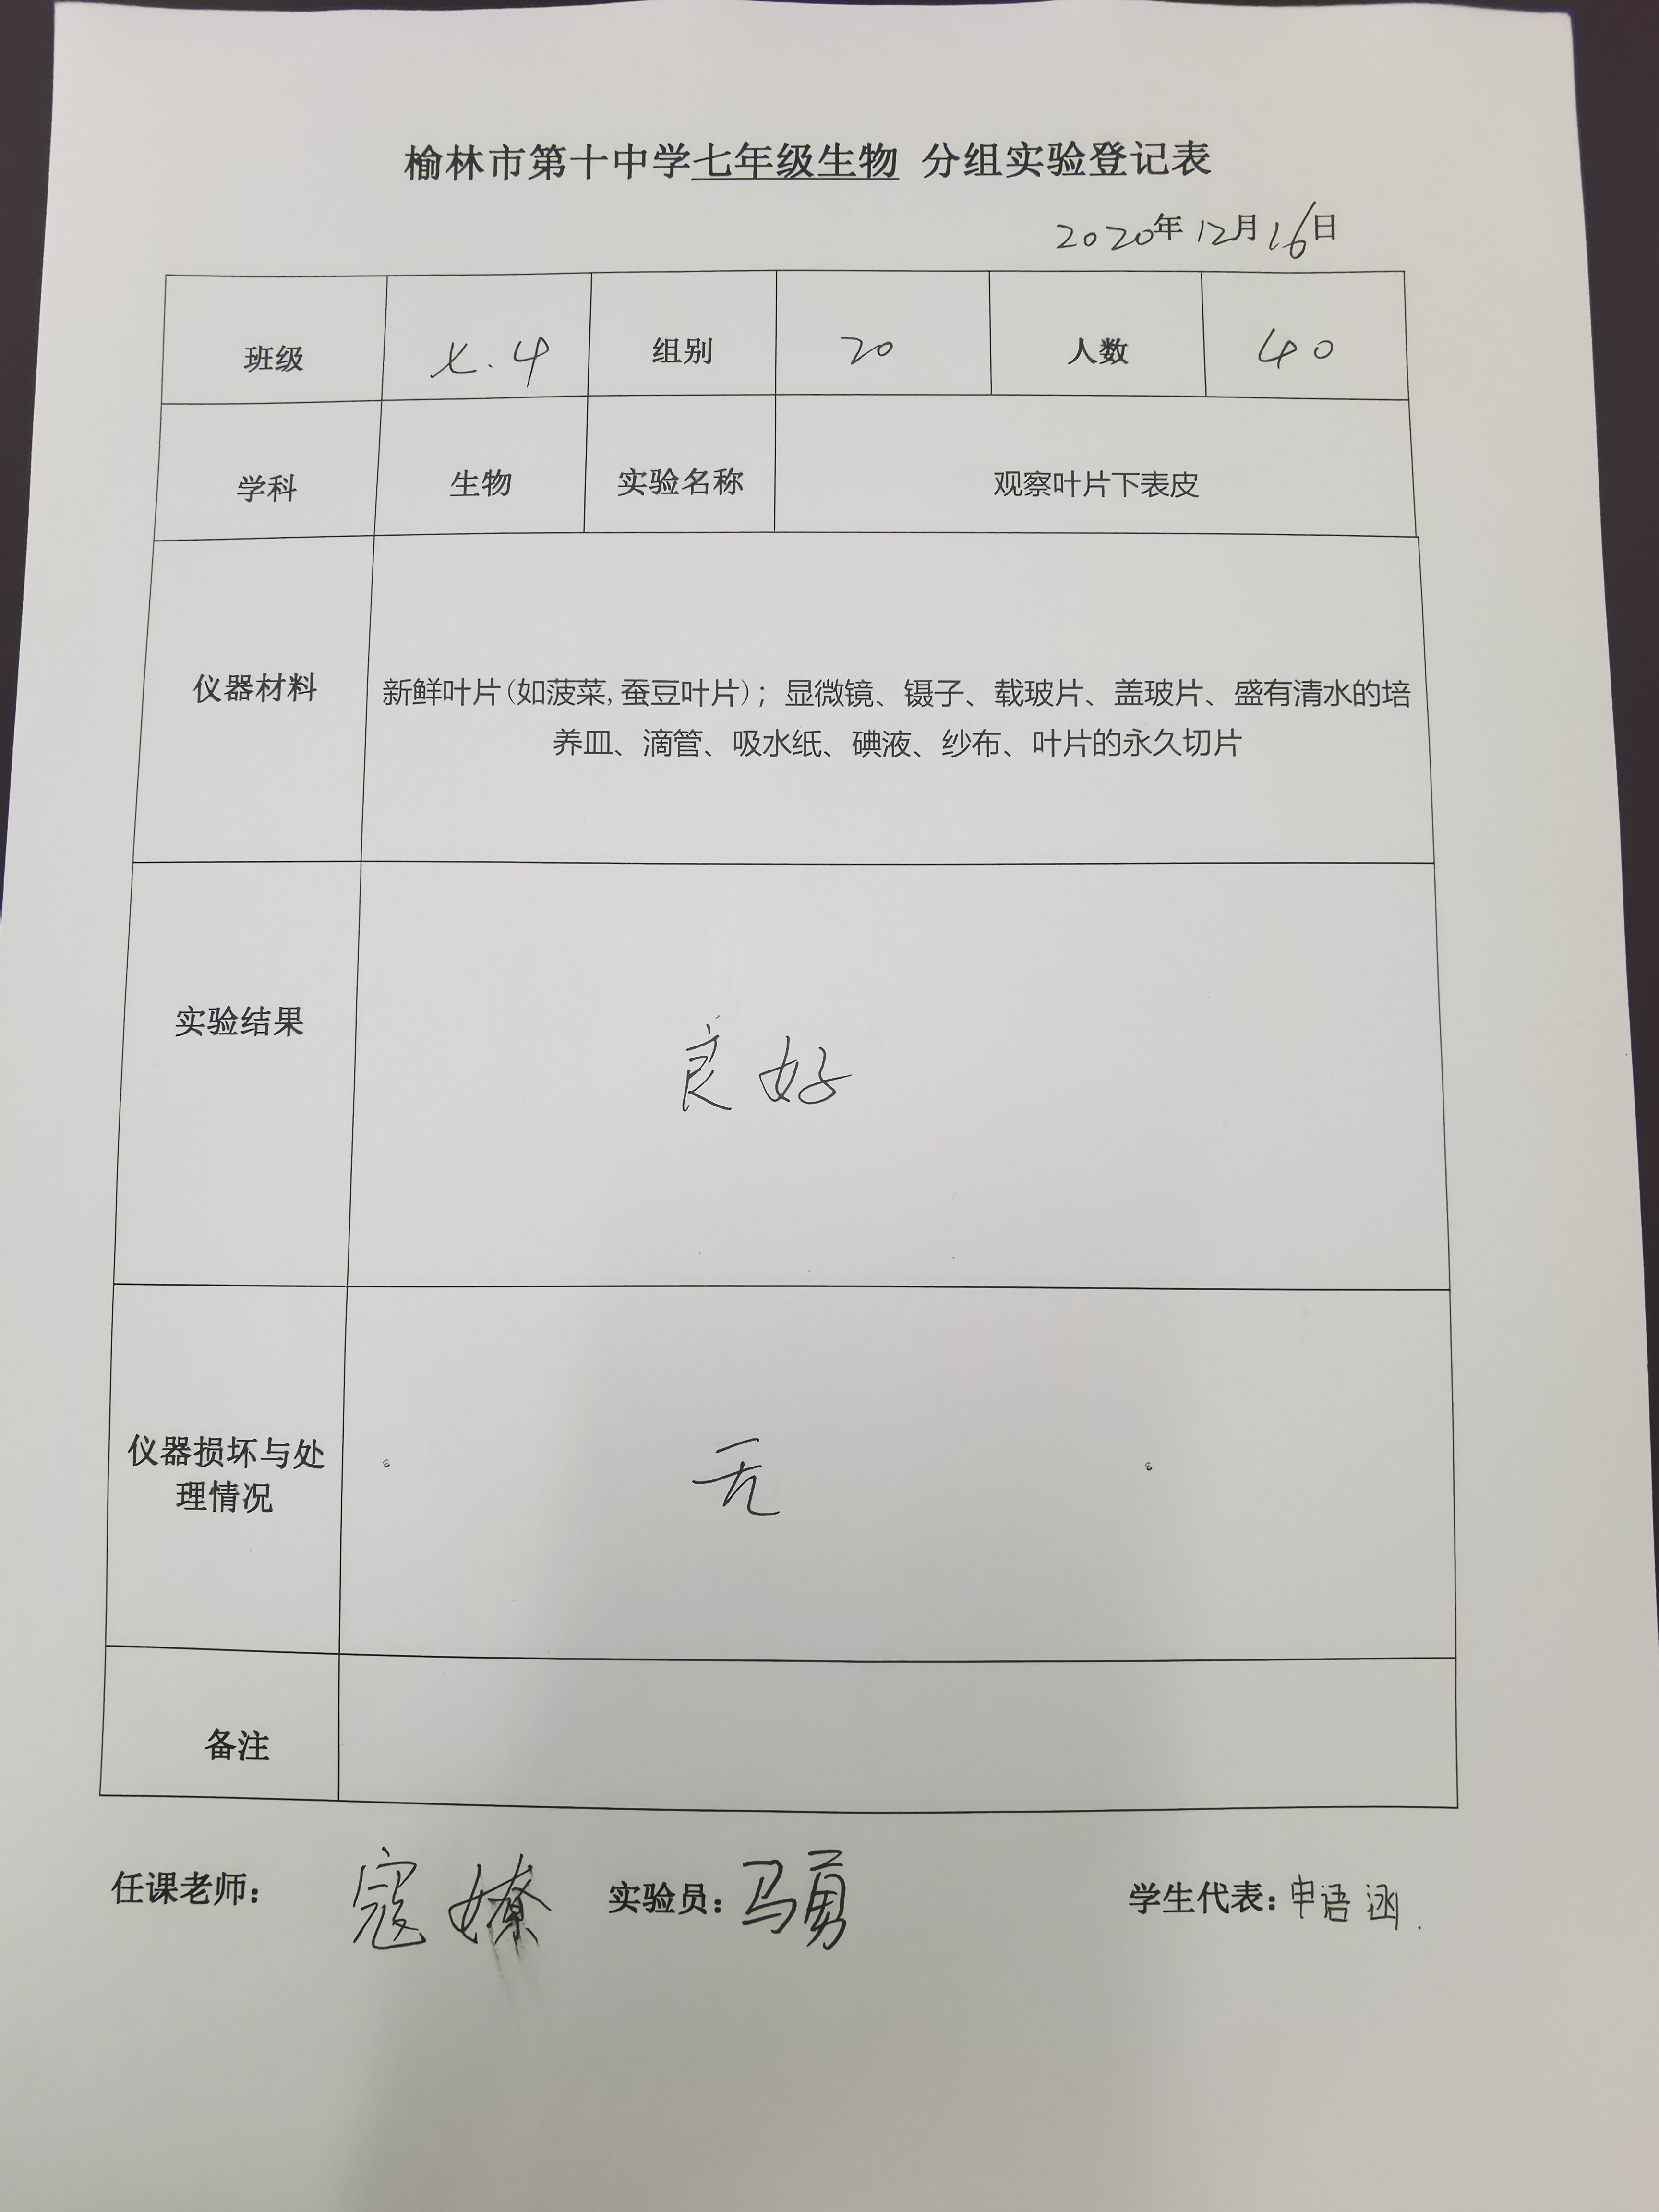 榆林市第十中学七年级生物 分组实验登记表
2020年12月16日
班级 七.4 组别 20 人数 40
学科 生物 实验名称 观察叶片下表皮
仪器材料
新鲜叶片(如菠菜,蚕豆叶片)；显微镜、镊子、载玻片、盖玻片、盛有清水的培
养皿、滴管、吸水纸、碘液、纱布、叶片的永久切片
实验结果 良好
仪器损坏与处
理情况
无
备注
任课老师： 寇嫽 实验员：马勇 学生代表：申语涵.